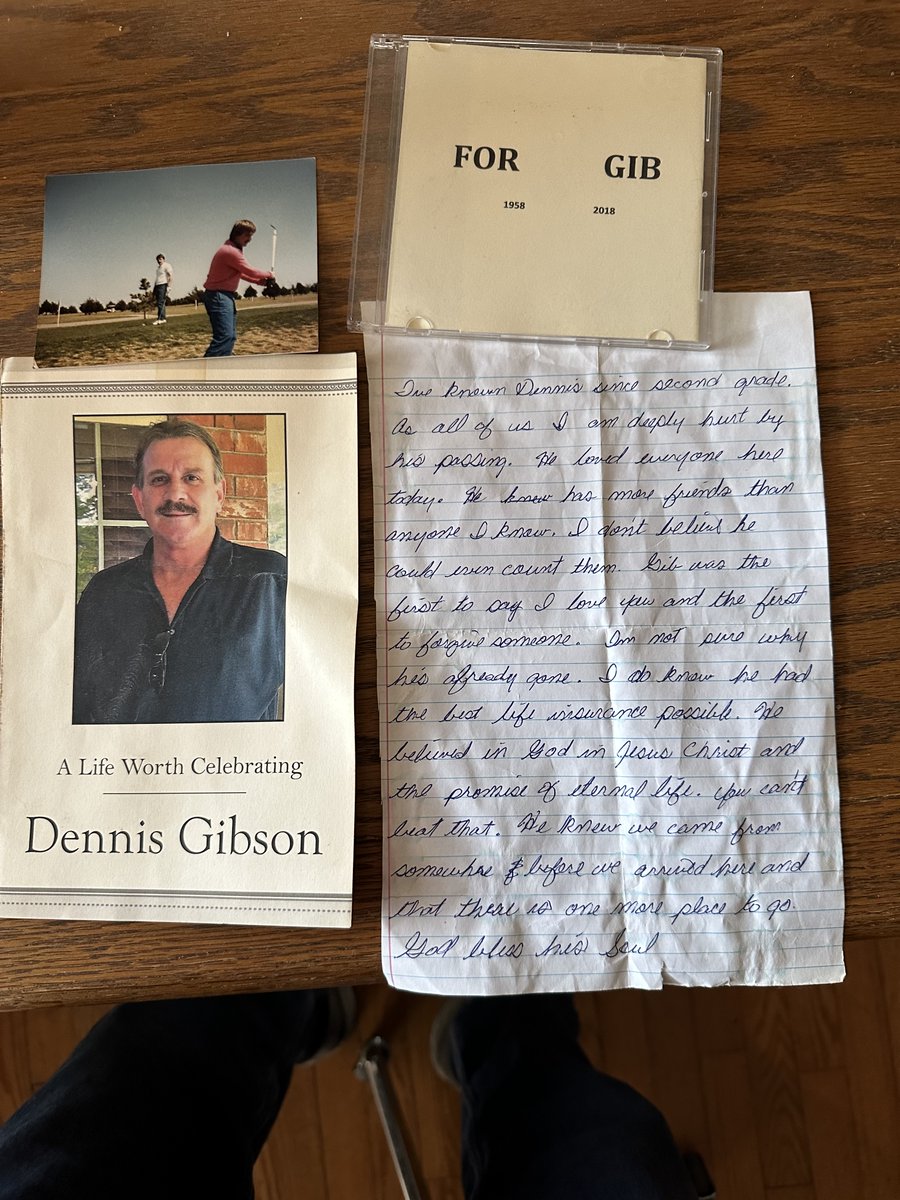 FOR GIB
1958 2018
A Life Worth Celebrating
Dennis Gibson
I've known Dennis since second grade.
As all of us I am deeply hurt by
his passing. He loved everyone here
today. He knew has more friends than
anyone I know. I don't believe he
could even count them. Gib was the
first to say I love you and the first
to forgive someone. Im not sure why
he's already gone. I do know he had
the best life insurance possible. He
believed in God in Jesus Christ and
the promise of eternal life. You can't
beat that. He knew we came from
somewhere before we arrived here and
that there is one more place to go.
God bless his Soul